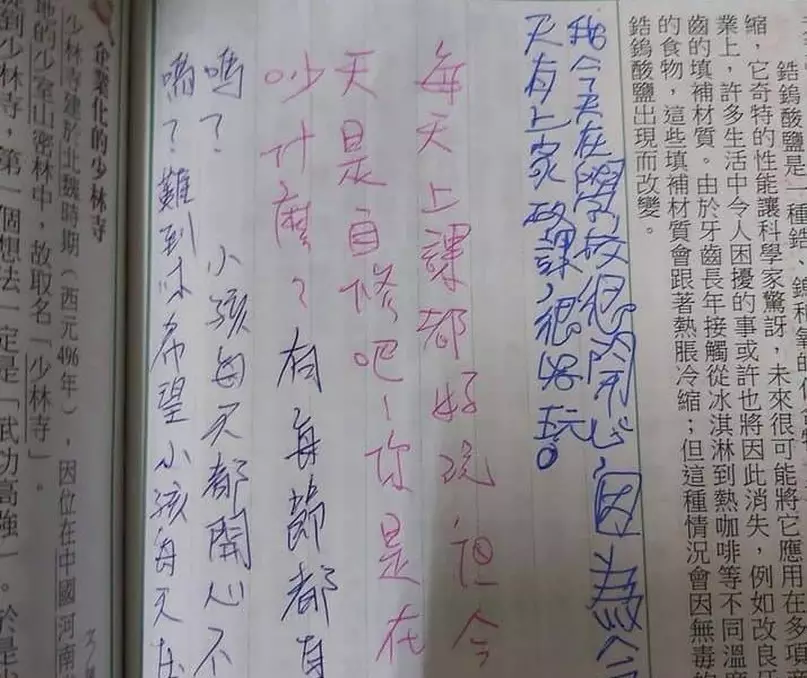 鋯鎢酸鹽是一種鋯、鎢和氧的
縮，它奇特的性能讓科學家驚訝，未來很可能將它應用在多項產
業上，許多生活中令人困擾的事或許也將因此消失，例如改良牙
齒的填補材質。由於牙齒長年接觸從冰淇淋到熱咖啡等不同溫度
的食物，這些填補材質會跟著熱脹冷縮；但這種情況會因無毒的
鋯鎢酸鹽出現而改變。
我今天在學校很開心，因為今
天有上家政課，很好玩。
每天上課都好玩，但今
天是自修吧！你是在
吵什麼？有每節都有
嗎？小孩每天都開心不
嗎？難到你希望小孩每天在
企業化的少林寺
少林寺建於北魏時期（西元496年），因位在中國河南
地的少室山密林中，故取名「少林寺」。
到少林寺，第一個想法一定是「武功高強」。於是